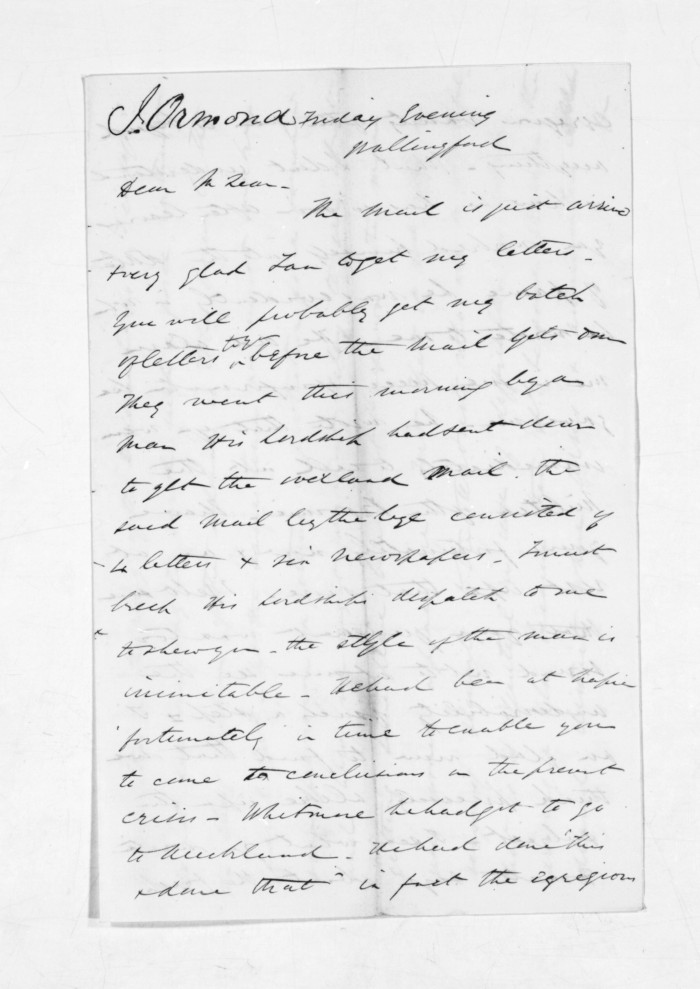 J. Ormond Friday Evening
Wallingford
Dear McLean -
The mail is just arrived
& very glad I am to get my letters -
you will probably get my batch
of letters before the mail gets down
They went this morning by a
man His Lordship had sent down
to get the overland mail. the
said mail by the bye consisted of
4 letters & six newspapers - I must
His Lordship's dispatch to me
to shew you - the style of the man is
inimitable - He had been at Napier
fortunately in time to enable you
to come to conclusions on the present
crisis - Whitmore he had got to go
to Auckland - He had done "this
& done that" in fact the egregious